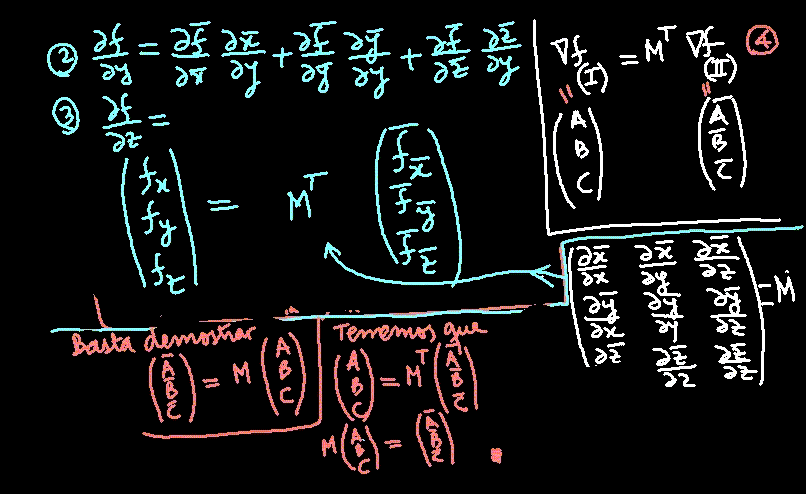 ② ∂f/∂y = ∂f̄/∂x̄ ∂x̄/∂y + ∂f̄/∂ȳ ∂ȳ/∂y + ∂f̄/∂z̄ ∂z̄/∂y
③ ∂f/∂z =
(fx fy fz) = Mᵀ (f̄x̄ f̄ȳ f̄z̄)
∇f (I) = Mᵀ ∇f̄ (II) ④
" "
(A B C) (Ā B̄ C̄)
(∂x̄/∂x ∂x̄/∂y ∂x̄/∂z
∂ȳ/∂x ∂ȳ/∂y ∂ȳ/∂z
∂z̄ ∂z̄/∂z ∂z̄/∂z) = M
Basta demostrar
(Ā B̄ C̄) = M (A B C)
Tenemos que
(A B C) = Mᵀ (Ā B̄ C̄)
M (A B C) = (Ā B̄ C̄)